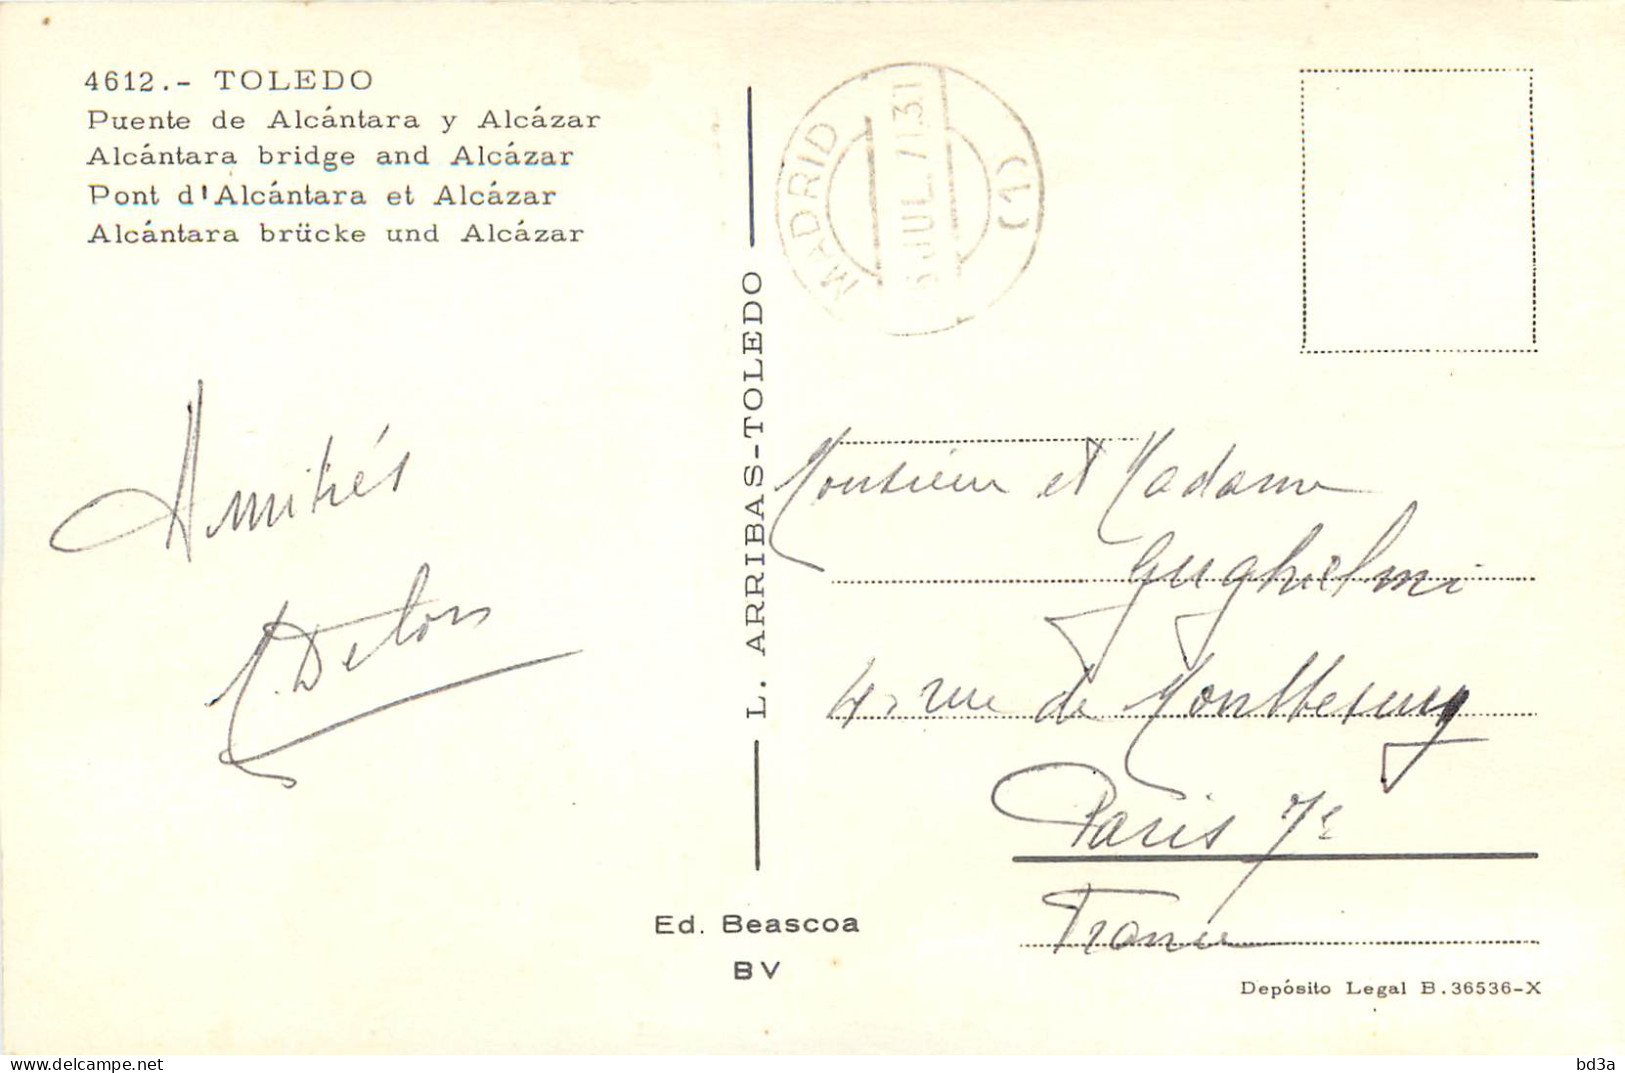 4612.- TOLEDO
Puente de Alcántara y Alcázar
Alcántara bridge and Alcázar
Pont d'Alcántara et Alcázar
Alcántara brücke und Alcázar
MADRID
JUL.
(1)
L. ARRIBAS-TOLEDO
Amitiés
Monsieur et Madame
Guglielmi
4, rue de
Paris 7e
France
Ed. Beascoa
BV
Depósito Legal B.36536-X
bd3a